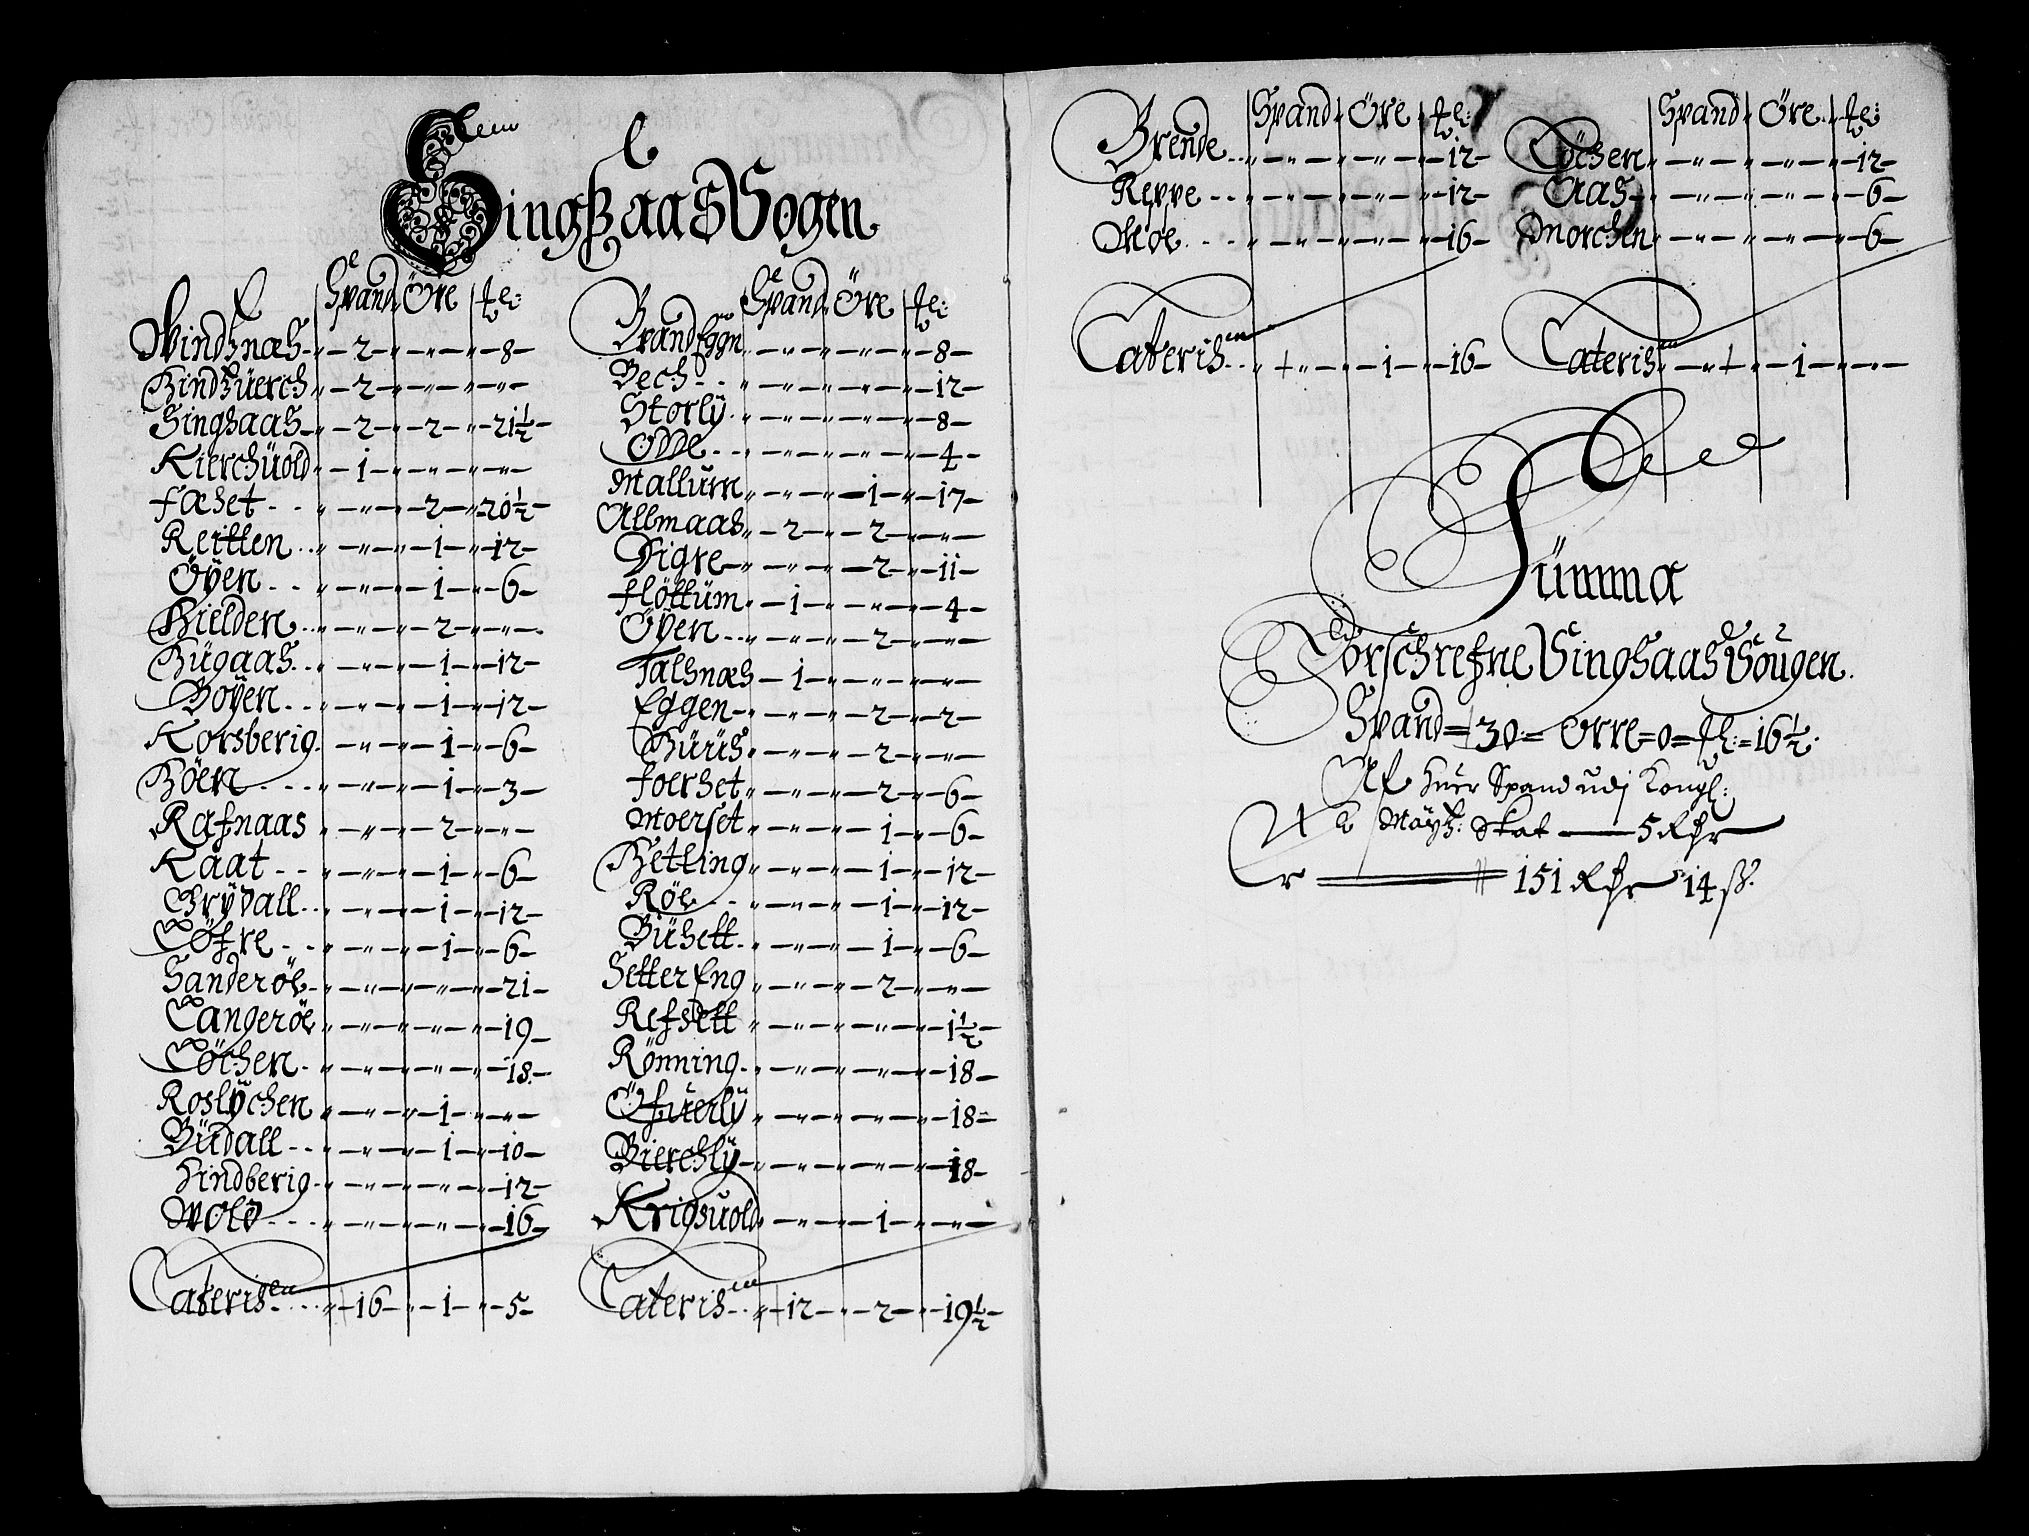 Singsaas Sogen
Spand Öre
Windsnæs - 2 - - 8
Hindbüerch - 2 - - -
Singsaas - 2 - 2 - 21½
Kierchüold - 1 - - -
Foxhet - - 2 - 20½
Reitten - - 1 - 12
Öÿen - - 1 - 6
Hielden - - 2 - -
Hügaas - - 1 - 12
Boÿen - - 1 - 12
Korsberig - - 1 - 6
Höen - - 1 - 3
Rafnaas - - 2 - -
Kaat - - 1 - 6
Grÿdall - - 1 - 12
Löfre - - 1 - 6
Sanderöe - - - 21
Langeröe - - - 19
Löchen - - - 18
Roslÿchen - - 1 - -
Büdall - - 1 - 10
Hindberig - - - 12
Wold - - - 16
Lateris - 16 - 1 - 5
Spand Öre
Brand Eggen - - - 8
Bech - - - 12
Storlÿ - - - 8
Odde - - - 4
Mallum - - 1 - 17
Allmaas - 2 - 2 - -
Digre - - 2 - 11
Flöttüm - 1 - - 4
Öÿen - - 2 - -
Talsnæs - 1 - - -
Eggen - - 2 - 2
Hüüs - - 2 - -
Foerset - - 2 - 6
Moerset - - 1 - 6
Hetting - - 1 - 12
Röe - - 1 - 12
Bühett - - 1 - 6
Setter Eng - - 2 - -
Refsett - - - 1½
Rönning - - - 18
Öfuerlÿ - - - 18
Bierchlÿ - - - 18
Krigsuold - - 1 - -
Lateris - 12 - 2 - 19½
Spand Öre
Brende - - - 12
Reppe - - - 12
Moe - - - 16
Lateris - + - 1 - 16
Spand Öre
Löchen - - - 12
Aas - - - 6
Morchen - - - 6
Lateris - + - 1 - -
Summa
Forschrefne Singsaas Sougen
Spand = 30 = Örre = 0 = = 16½
Af huer Spand udj Kongl:
Maÿt: Skat — 5 Rdr
Er = 151 Rdr 14 ß.